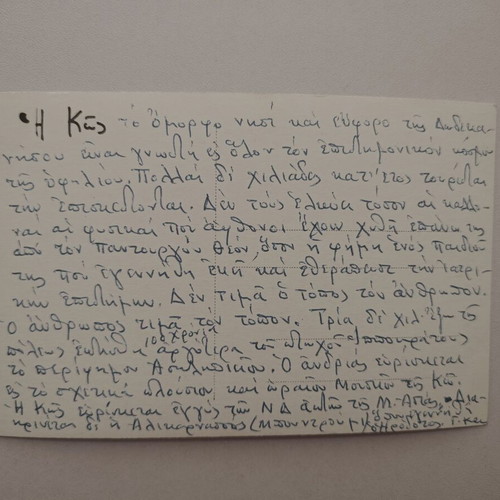 Ἡ Κῶς τὸ ὄμορφο νησὶ καὶ εὔφορο τῆς Δωδεκα-
νήσου εἶναι γνωστὴ εἰς ὅλον τὸν ἐπιστημονικὸν κόσμον
τῆς ὑφηλίου. Πολλαὶ δὲ χιλιάδες κατ' ἔτος τουρίσται
τὴν ἐπισκέπτονται. Δὲν τοὺς ἑλκύει τόσον αἱ καλλο-
ναὶ αἱ φυσικαὶ ποὺ ἀφθονοι ἔχουν χυθῆ ἐπάνω της
ἀπὸ τὸν παντουργὸν Θεόν, ὅσον ἡ φήμη ἑνὸς παιδιοῦ
της ποὺ ἐγεννήθη ἐκεῖ καὶ ἐθεράπευσε τὴν ἰατρι-
κὴν ἐπιστήμην. Δὲν τιμᾶ ὁ τόπος τὸν ἄνθρωπον.
Ὁ ἄνθρωπος τιμᾶ τὸν τόπον. Τρία δὲ χιλ. ἔξω τῆς
πόλεως ἐκτίσθη 100 χρόνια ἀργότερα τοῦ Ἱπποκράτους
τὸ περίφημον Ἀσκληπιεῖον. Ὁ ἀνδριὰς εὑρίσκεται
εἰς τὸ σχετικὰ πλούσιον καὶ ὡραῖον Μουσεῖον τῆς Κῶ.
Ἡ Κῶς εὑρίσκεται ἐγγὺς τῶν ΝΔ ἀκτῶν τῆς Μ. Ἀσίας. Δια-
κρίνεται δὲ ἡ Ἁλικαρνασσὸς (Μπουντρούμ) ὁ Ἡρόδοτος